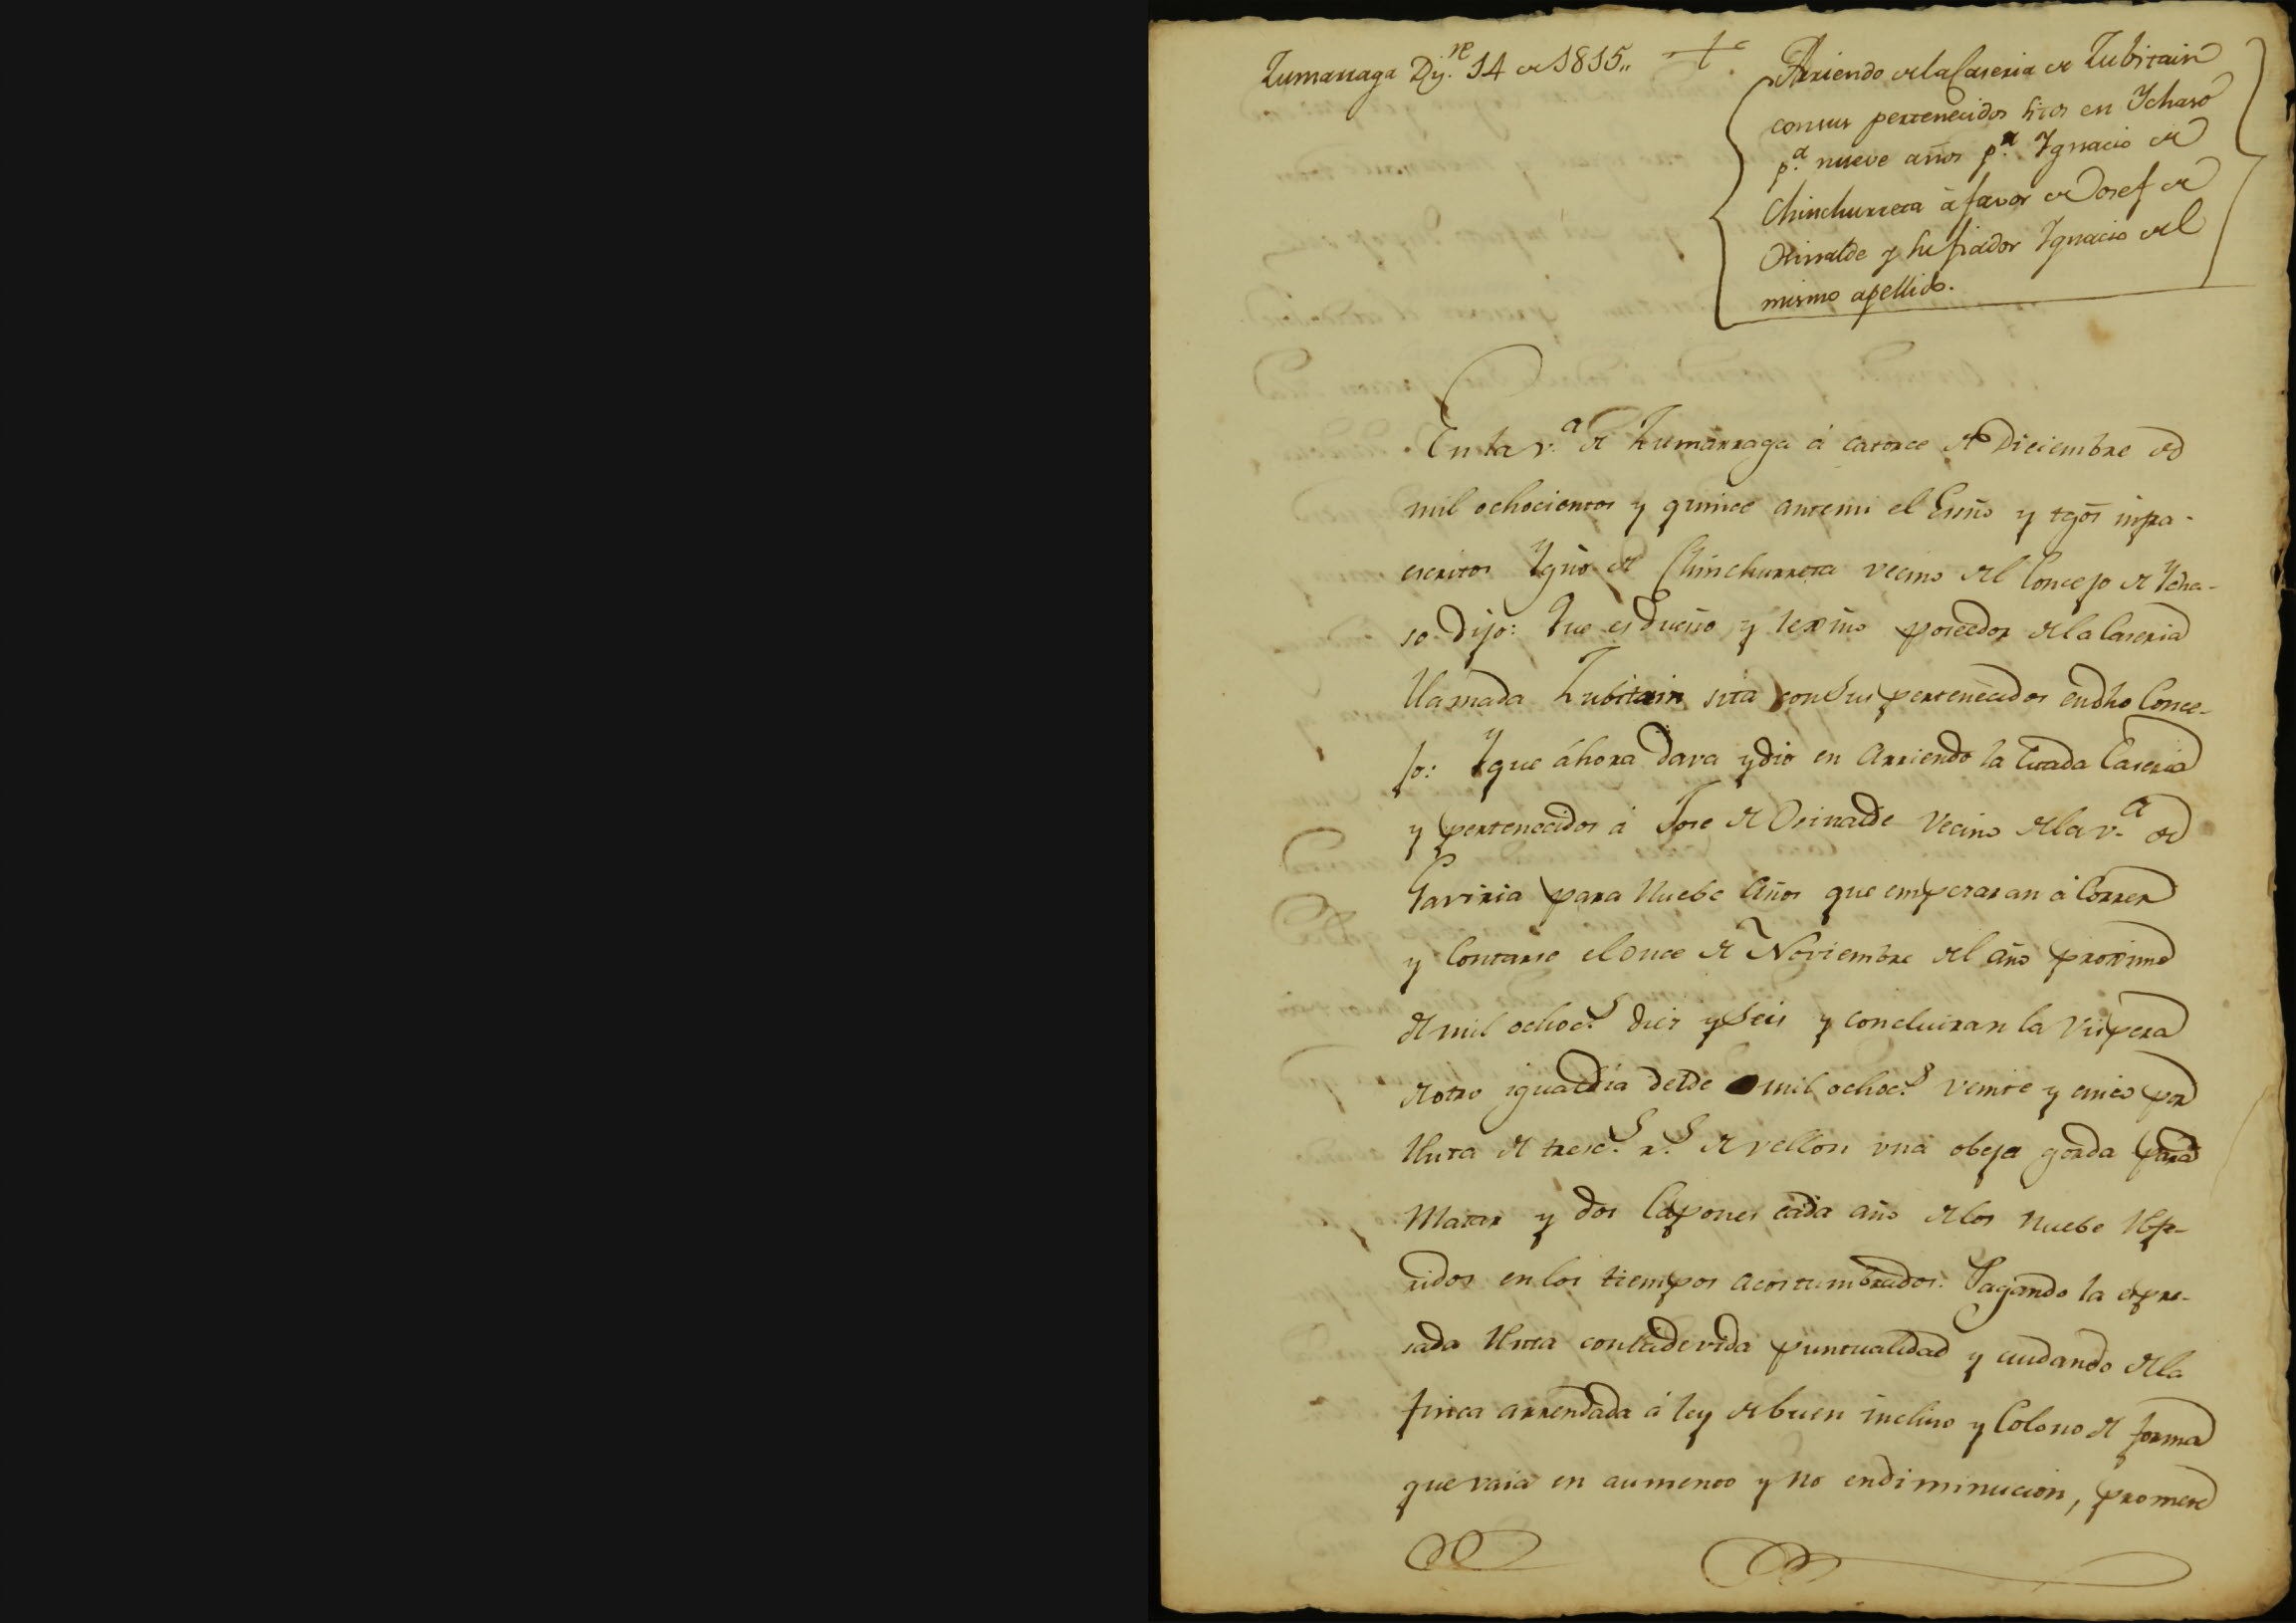 Zumarraga Dz.re 14 de 1815.,
Arriendo de la Caseria de Zubitain
con sus pertenecidos sitos en Ychaso
p.a nueve años p.r Ygnacio de
Chinchurreta à favor de Josef de
Orinalde y su fiador Ygnacio del
mismo apellido.
En la v.a de Zumarraga á catorce de Diciembre de
mil ochocientos y quince ante mi el Essno y tgos infra-
escritos Ygnō de Chinchurreta vecino del Concejo de Ycha-
so Dijo: Que es dueño y lexmo poseedor de la Caseria
llamada Zubitain sita con sus pertenecidos en dho Conce-
jo: Y que áhora dava y dio en Arriendo la Citada Caseria
y pertenecidos á Jose de Orinalde Vecino de la v.a de
Gaviria para Nuebe Años que empezaran á Correr
y Contarse el once de Noviembre del Año proximo
de mil ochoc.s diez y Seis y concluiran la Vispera
de otro igual dia del de mil ochoc.s veinte y cinco por
Renta de tresc.s r.s de vellon una obeja gorda para
Matar y dos Capones cada año de los Nuebe Refe-
ridos en los tiempos acostumbrados. Pagando la expre-
sada Renta con la devida puntualidad y cuidando de la
finca arrendada á ley de buen inclino y Colono de forma
que vaia en aumento y no en diminucion, promete